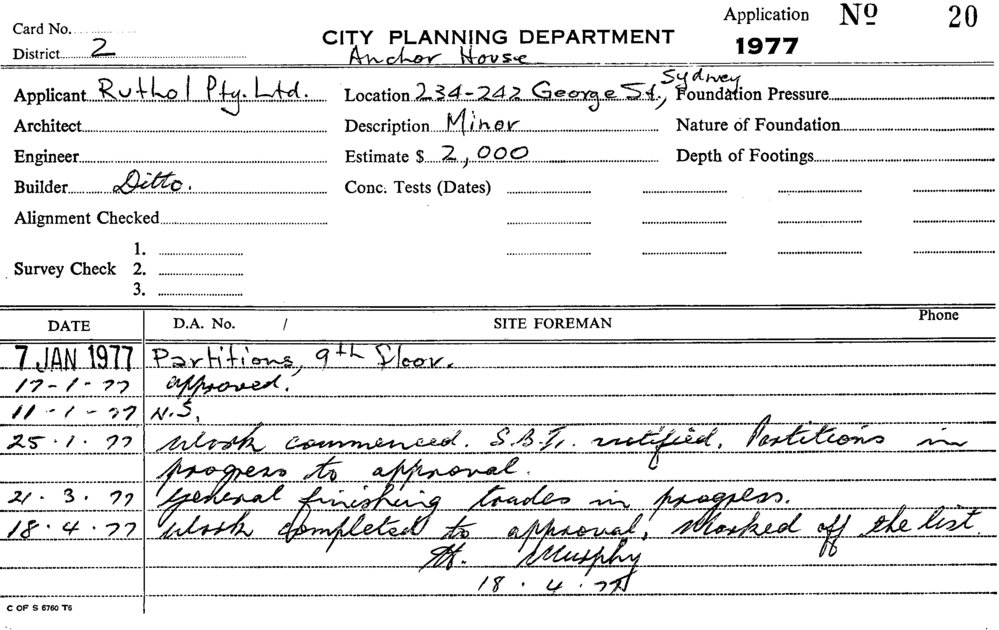 Card No.
Application No 20
District 2
CITY PLANNING DEPARTMENT
1977
Anchor House
Applicant Ruthol Pty. Ltd.
Location 234-242 George St., Sydney
Foundation Pressure
Architect
Description Minor
Nature of Foundation
Engineer
Estimate $ 2,000
Depth of Footings
Builder Ditto.
Conc. Tests (Dates)
Alignment Checked
1.
Survey Check 2.
3.
DATE D.A. No. / SITE FOREMAN Phone
7 JAN 1977 Partitions, 9th floor.
17-1-77 approved.
11-1-77 N.S.
25.1.77 Work commenced. S.B.I. notified. Partitions in
progress to approval.
21.3.77 General finishing trades in progress.
18.4.77 Work completed to approval, Marked off the list
Murphy
18.4.77
C OF S 6760 T6